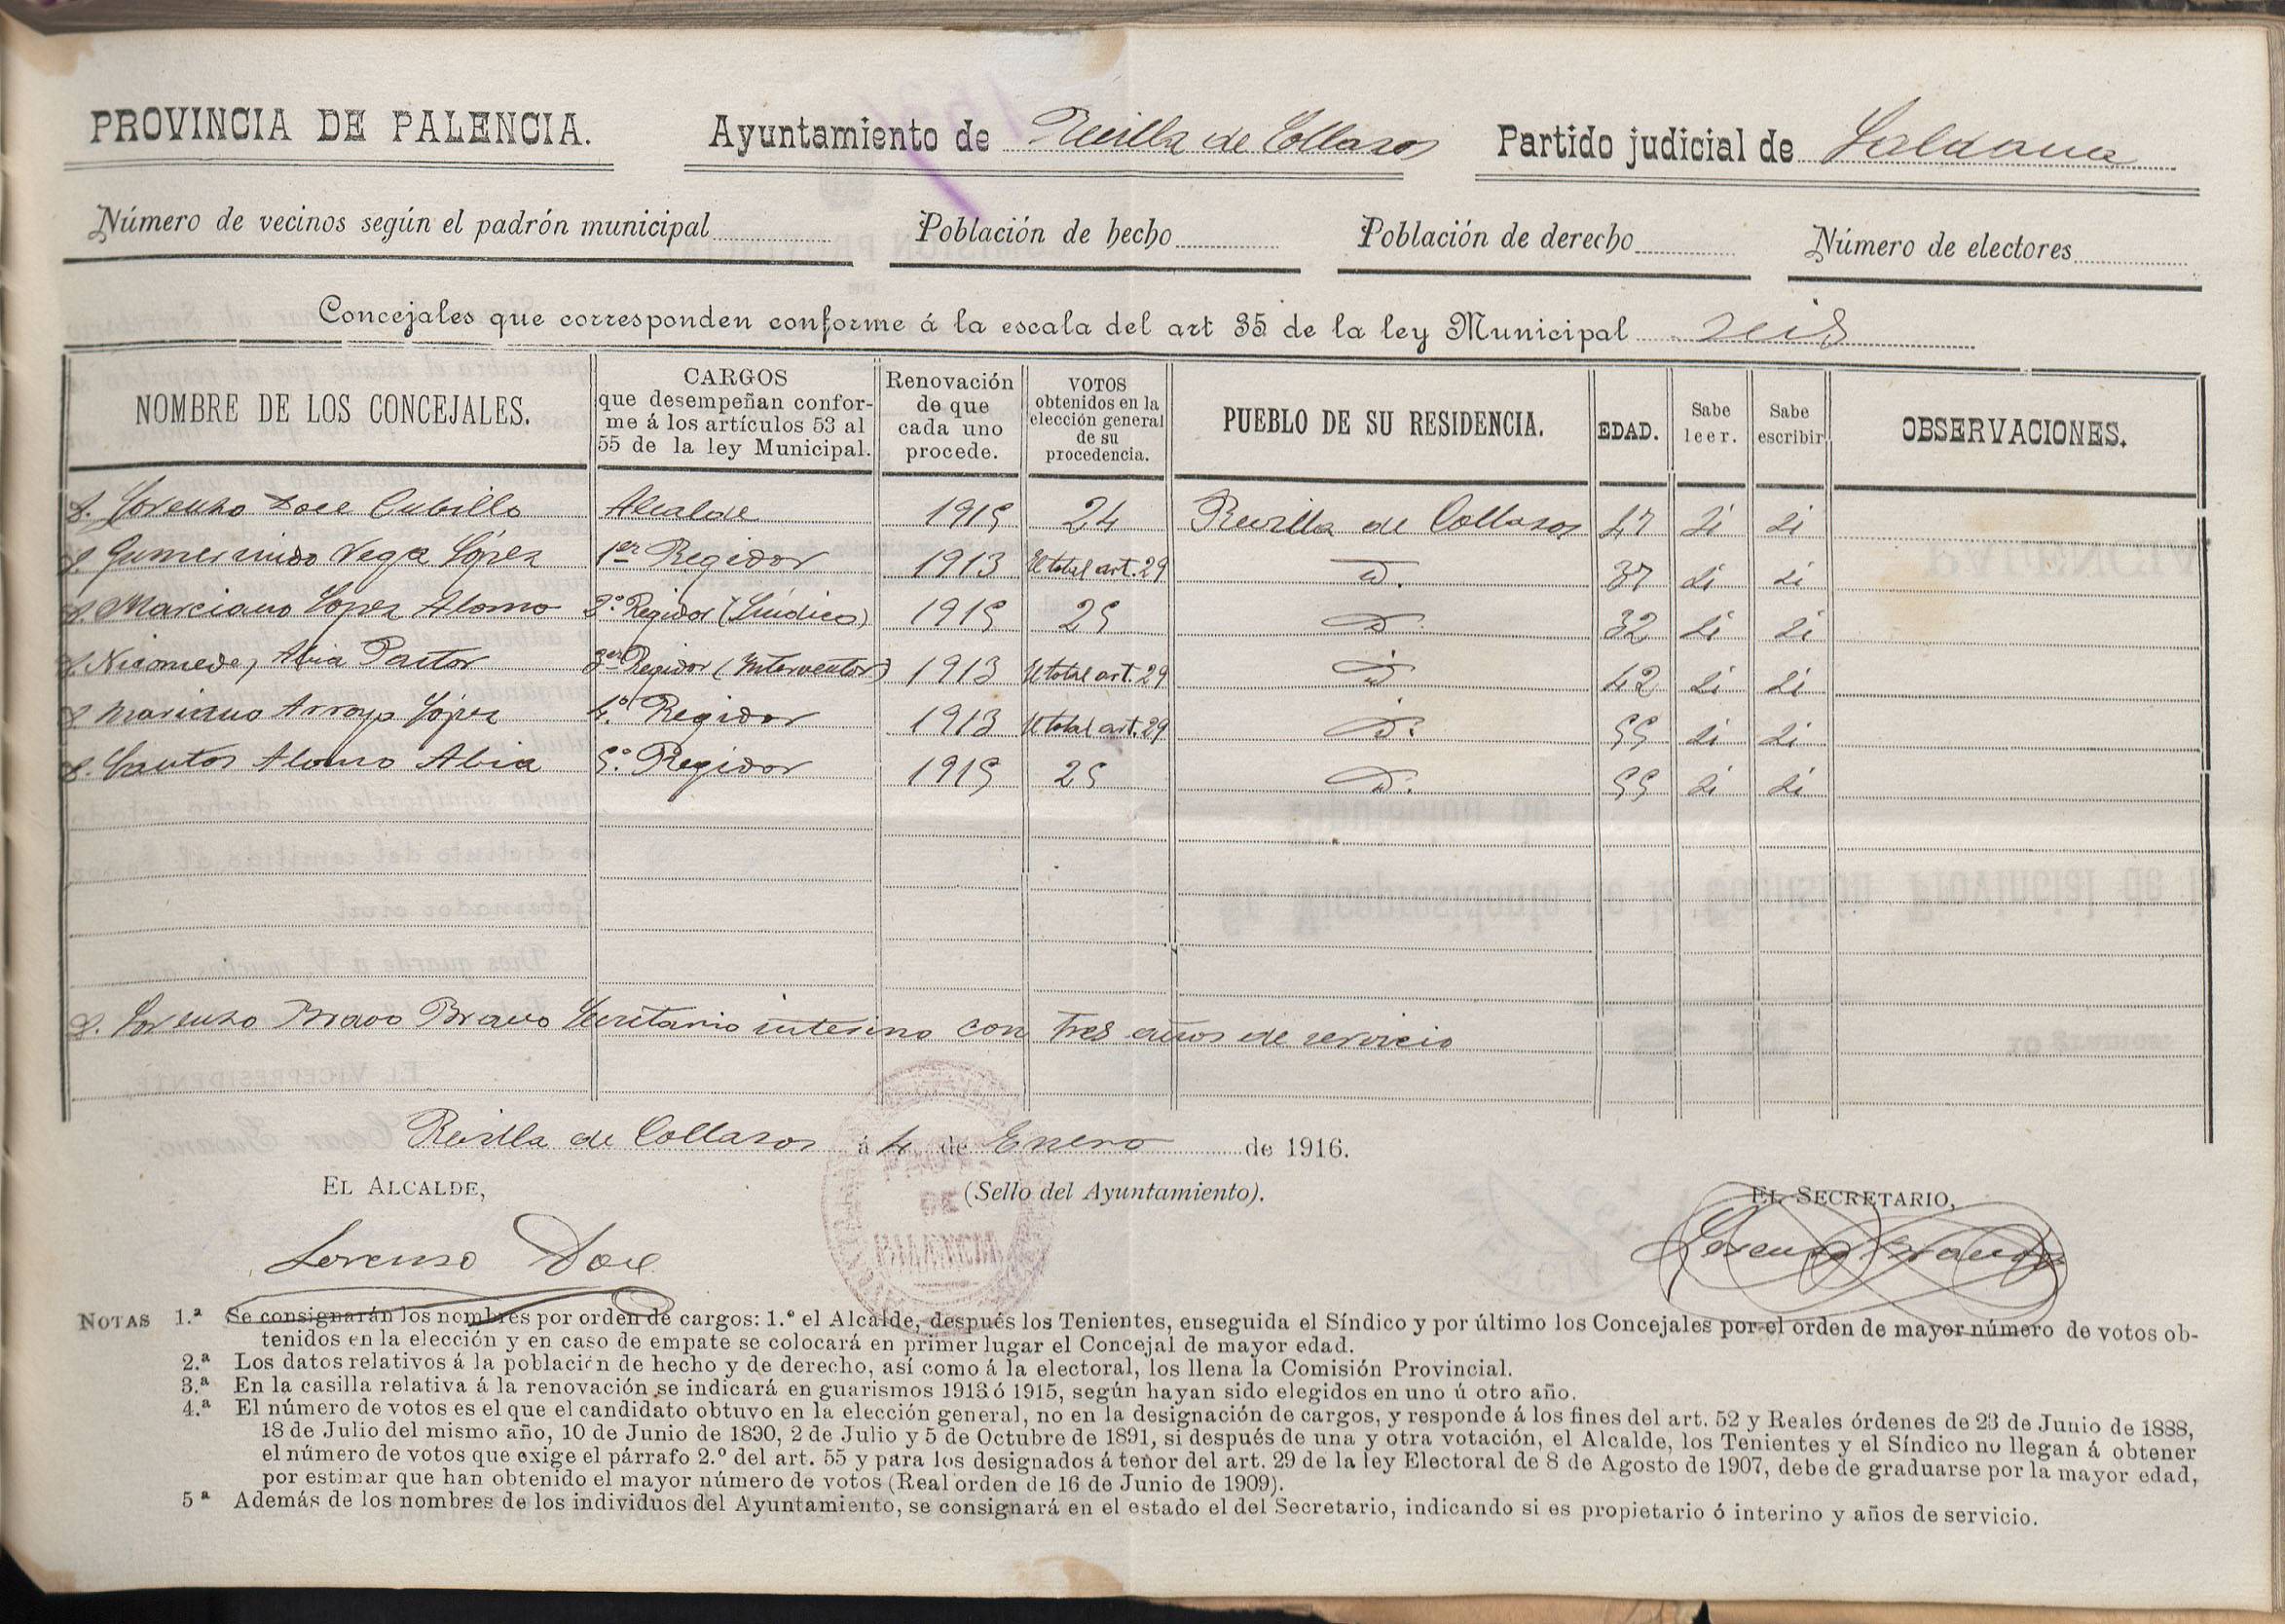 PROVINCIA DE PALENCIA. Ayuntamiento de Revilla de Collazos Partido judicial de Saldaña
Número de vecinos según el padrón municipal Población de hecho Población de derecho Número de electores
Concejales que corresponden conforme á la escala del art 35 de la ley Municipal seis
NOMBRE DE LOS CONCEJALES.
CARGOS
que desempeñan confor-
me á los artículos 53 al
55 de la ley Municipal.
Renovación
de que
cada uno
procede.
VOTOS
obtenidos en la
elección general
de su
procedencia.
PUEBLO DE SU RESIDENCIA.
EDAD.
Sabe
leer.
Sabe
escribir
OBSERVACIONES.
D. Lorenzo Doce Cubillo Alcalde 1915 24 Revilla de Collazos 47 si si
D. Gumersindo Vega López 1er Regidor 1913 El total art. 29 id. 37 si si
D. Marciano Lopez Alonso 2º Regidor (Síndico) 1915 25 id. 32 si si
D. Nicomedes Abia Pastor 3er Regidor (Interventor) 1913 El total art. 29 id. 42 si si
D. Mariano Arroyo López 4º Regidor 1913 El total art. 29 id. 55 si si
D. Santos Alonso Abia 5º Regidor 1915 25 id. 55 si si
D. Lorenzo Bravo Bravo Secretario interino con tres años de servicio
Revilla de Collazos á 4 de Enero de 1916.
EL ALCALDE, (Sello del Ayuntamiento). EL SECRETARIO,
Lorenzo Doce Lorenzo Bravo
NOTAS 1.ª Se consignarán los nombres por orden de cargos: 1.º el Alcalde, después los Tenientes, enseguida el Síndico y por último los Concejales por el orden de mayor número de votos ob-
tenidos en la elección y en caso de empate se colocará en primer lugar el Concejal de mayor edad.
2.ª Los datos relativos á la población de hecho y de derecho, así como á la electoral, los llena la Comisión Provincial.
3.ª En la casilla relativa á la renovación se indicará en guarismos 1913 ó 1915, según hayan sido elegidos en uno ú otro año.
4.ª El número de votos es el que el candidato obtuvo en la elección general, no en la designación de cargos, y responde á los fines del art. 52 y Reales órdenes de 23 de Junio de 1888,
18 de Julio del mismo año, 10 de Junio de 1890, 2 de Julio y 5 de Octubre de 1891, si después de una y otra votación, el Alcalde, los Tenientes y el Síndico no llegan á obtener
el número de votos que exige el párrafo 2.º del art. 55 y para los designados á teñor del art. 29 de la ley Electoral de 8 de Agosto de 1907, debe de graduarse por la mayor edad,
por estimar que han obtenido el mayor número de votos (Real orden de 16 de Junio de 1909).
5ª Además de los nombres de los individuos del Ayuntamiento, se consignará en el estado el del Secretario, indicando si es propietario ó interino y años de servicio.